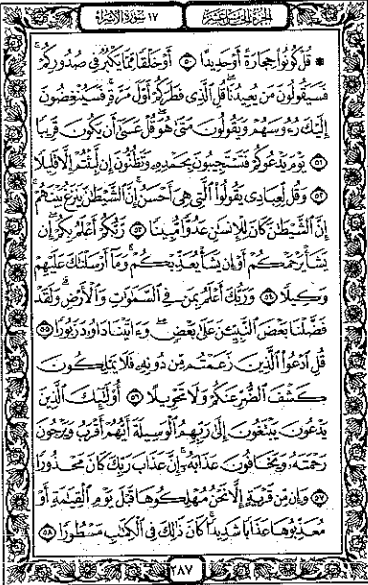 الجزء الخامس عشر ١٧ سورة الإسراء
۞ قُلْ كُونُوا۟ حِجَارَةً أَوْ حَدِيدًا ٥٠ أَوْ خَلْقًا مِّمَّا يَكْبُرُ فِى صُدُورِكُمْ
فَسَيَقُولُونَ مَن يُعِيدُنَا قُلِ ٱلَّذِى فَطَرَكُمْ أَوَّلَ مَرَّةٍ فَسَيُنْغِضُونَ
إِلَيْكَ رُءُوسَهُمْ وَيَقُولُونَ مَتَىٰ هُوَ قُلْ عَسَىٰٓ أَن يَكُونَ قَرِيبًا
٥١ يَوْمَ يَدْعُوكُمْ فَتَسْتَجِيبُونَ بِحَمْدِهِۦ وَتَظُنُّونَ إِن لَّبِثْتُمْ إِلَّا قَلِيلًا
٥٢ وَقُل لِّعِبَادِى يَقُولُوا۟ ٱلَّتِى هِىَ أَحْسَنُ إِنَّ ٱلشَّيْطَٰنَ يَنزَغُ بَيْنَهُمْ
إِنَّ ٱلشَّيْطَٰنَ كَانَ لِلْإِنسَٰنِ عَدُوًّا مُّبِينًا ٥٣ رَّبُّكُمْ أَعْلَمُ بِكُمْ إِن
يَشَأْ يَرْحَمْكُمْ أَوْ إِن يَشَأْ يُعَذِّبْكُمْ وَمَآ أَرْسَلْنَٰكَ عَلَيْهِمْ
وَكِيلًا ٥٤ وَرَبُّكَ أَعْلَمُ بِمَن فِى ٱلسَّمَٰوَٰتِ وَٱلْأَرْضِ وَلَقَدْ
فَضَّلْنَا بَعْضَ ٱلنَّبِيِّـۧنَ عَلَىٰ بَعْضٍ وَءَاتَيْنَا دَاوُۥدَ زَبُورًا ٥٥
قُلِ ٱدْعُوا۟ ٱلَّذِينَ زَعَمْتُم مِّن دُونِهِۦ فَلَا يَمْلِكُونَ
كَشْفَ ٱلضُّرِّ عَنكُمْ وَلَا تَحْوِيلًا ٥٦ أُو۟لَٰٓئِكَ ٱلَّذِينَ
يَدْعُونَ يَبْتَغُونَ إِلَىٰ رَبِّهِمُ ٱلْوَسِيلَةَ أَيُّهُمْ أَقْرَبُ وَيَرْجُونَ
رَحْمَتَهُۥ وَيَخَافُونَ عَذَابَهُۥٓ إِنَّ عَذَابَ رَبِّكَ كَانَ مَحْذُورًا
٥٧ وَإِن مِّن قَرْيَةٍ إِلَّا نَحْنُ مُهْلِكُوهَا قَبْلَ يَوْمِ ٱلْقِيَٰمَةِ أَوْ
مُعَذِّبُوهَا عَذَابًا شَدِيدًا كَانَ ذَٰلِكَ فِى ٱلْكِتَٰبِ مَسْطُورًا ٥٨
٢٨٧